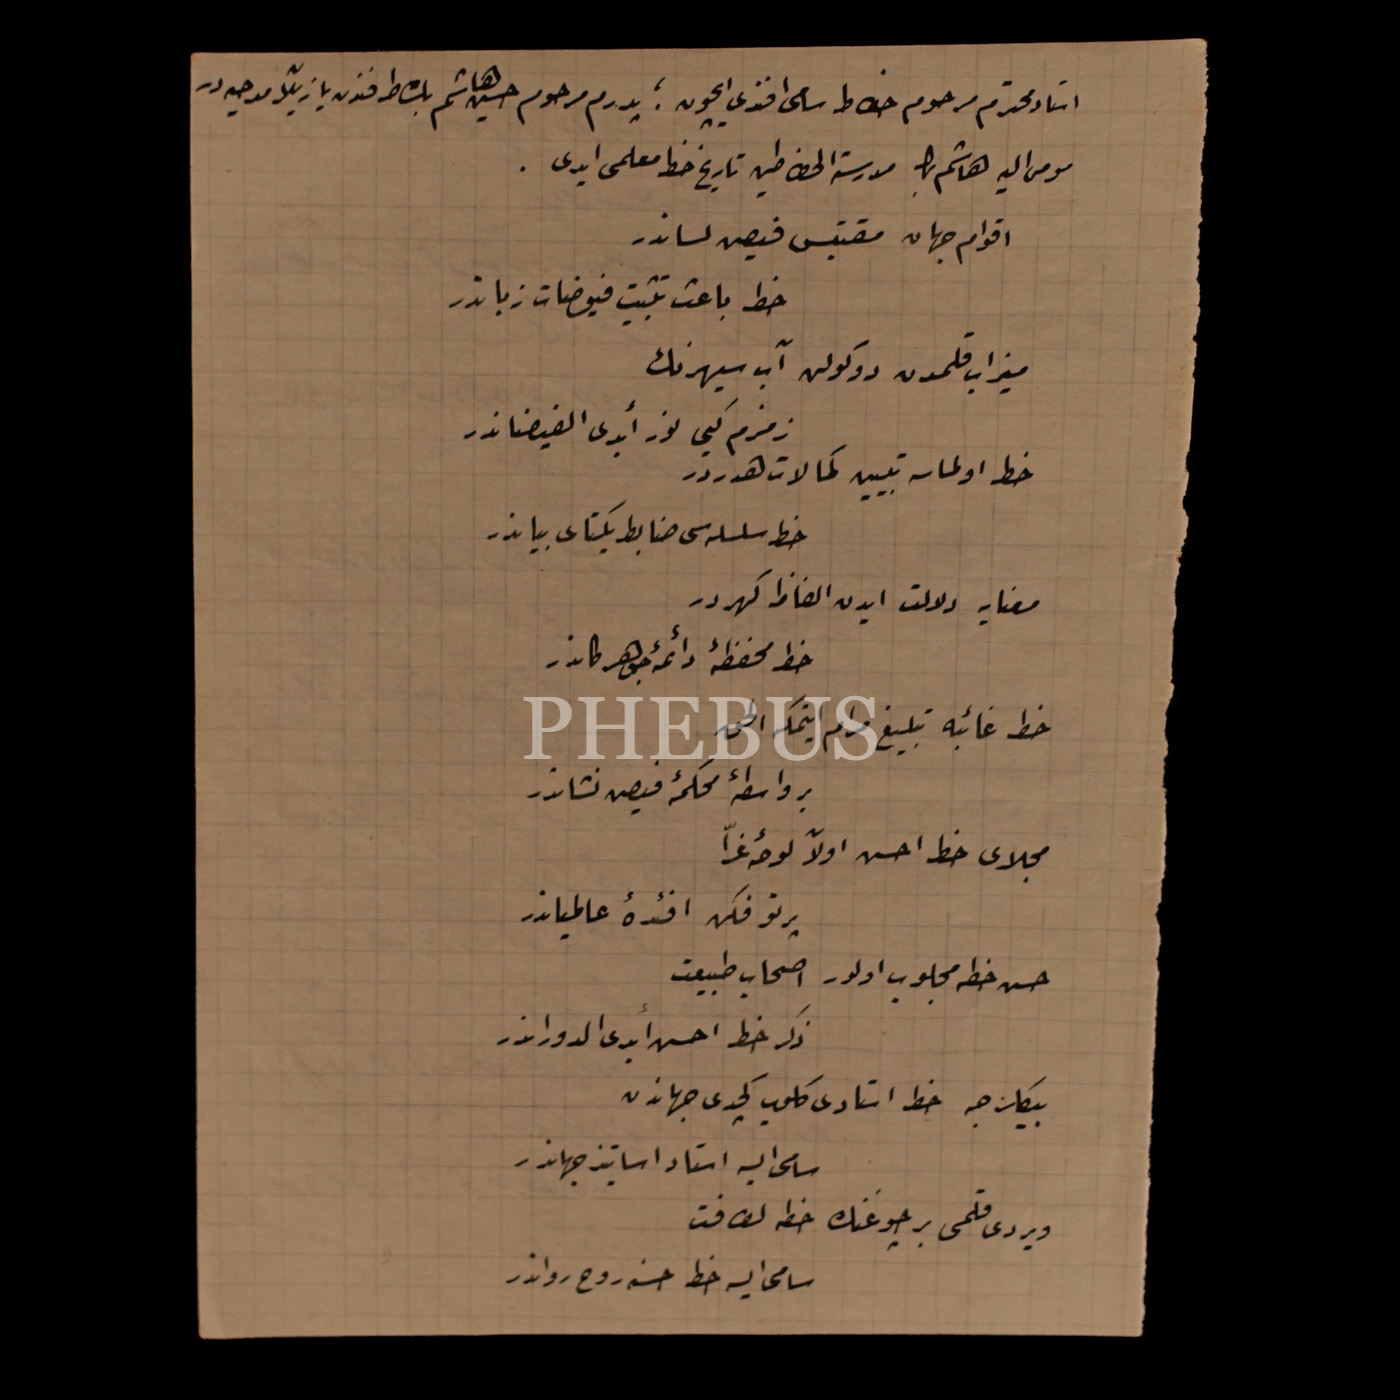 استاد محترم مرحوم خطاط سامی افندی ایچون ؛ پدرم مرحوم حسین هاشم بك طرفندن یازیلان مدحیه در
مومی الیه هاشم بك مدرسة الخطاطین تاریخ خط معلمی ایدی .
اقوام جهان مقتبس فیض لساندر
خط باعث تثبیت فیوضات زباندر
میزاب قلمدن دوكولن آب سیهرنك
زمزم كبی نور أبدی الفیضاندر
خط اولماسه تبیین كمالات هدردر
خط سلسله سی ضابط یكتای بیاندر
معنایه دلالت ایدن الفاظ كهردر
خط محفظۀ دائمۀ جواهر كاندر
خط غائبه تبلیغ مرام ایتمكه
بر واسطۀ محكمۀ فیض نشاندر
مجلای خط احسن اولان لوحۀ غرّا
پرتو فكن افئدۀ عالمیاندر
حسن خطه مجلوب اولور اصحاب طبیعت
ذكر خط احسن أبدی الدوراندر
بیكلرجه خط استادی كلوب كچدی جهاندن
سامی ایسه استاد اساتیذ جهاندر
ویردی قلمی بر چوغنك خطه لطافت
سامی ایسه خط حسنه روح رواندر
PHEBUS